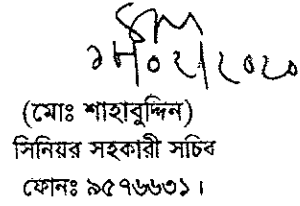 ২৮/০২/২০২০
(মোঃ শাহাবুদ্দিন)
সিনিয়র সহকারী সচিব
ফোনঃ ৯৫৭৬৬৩১।